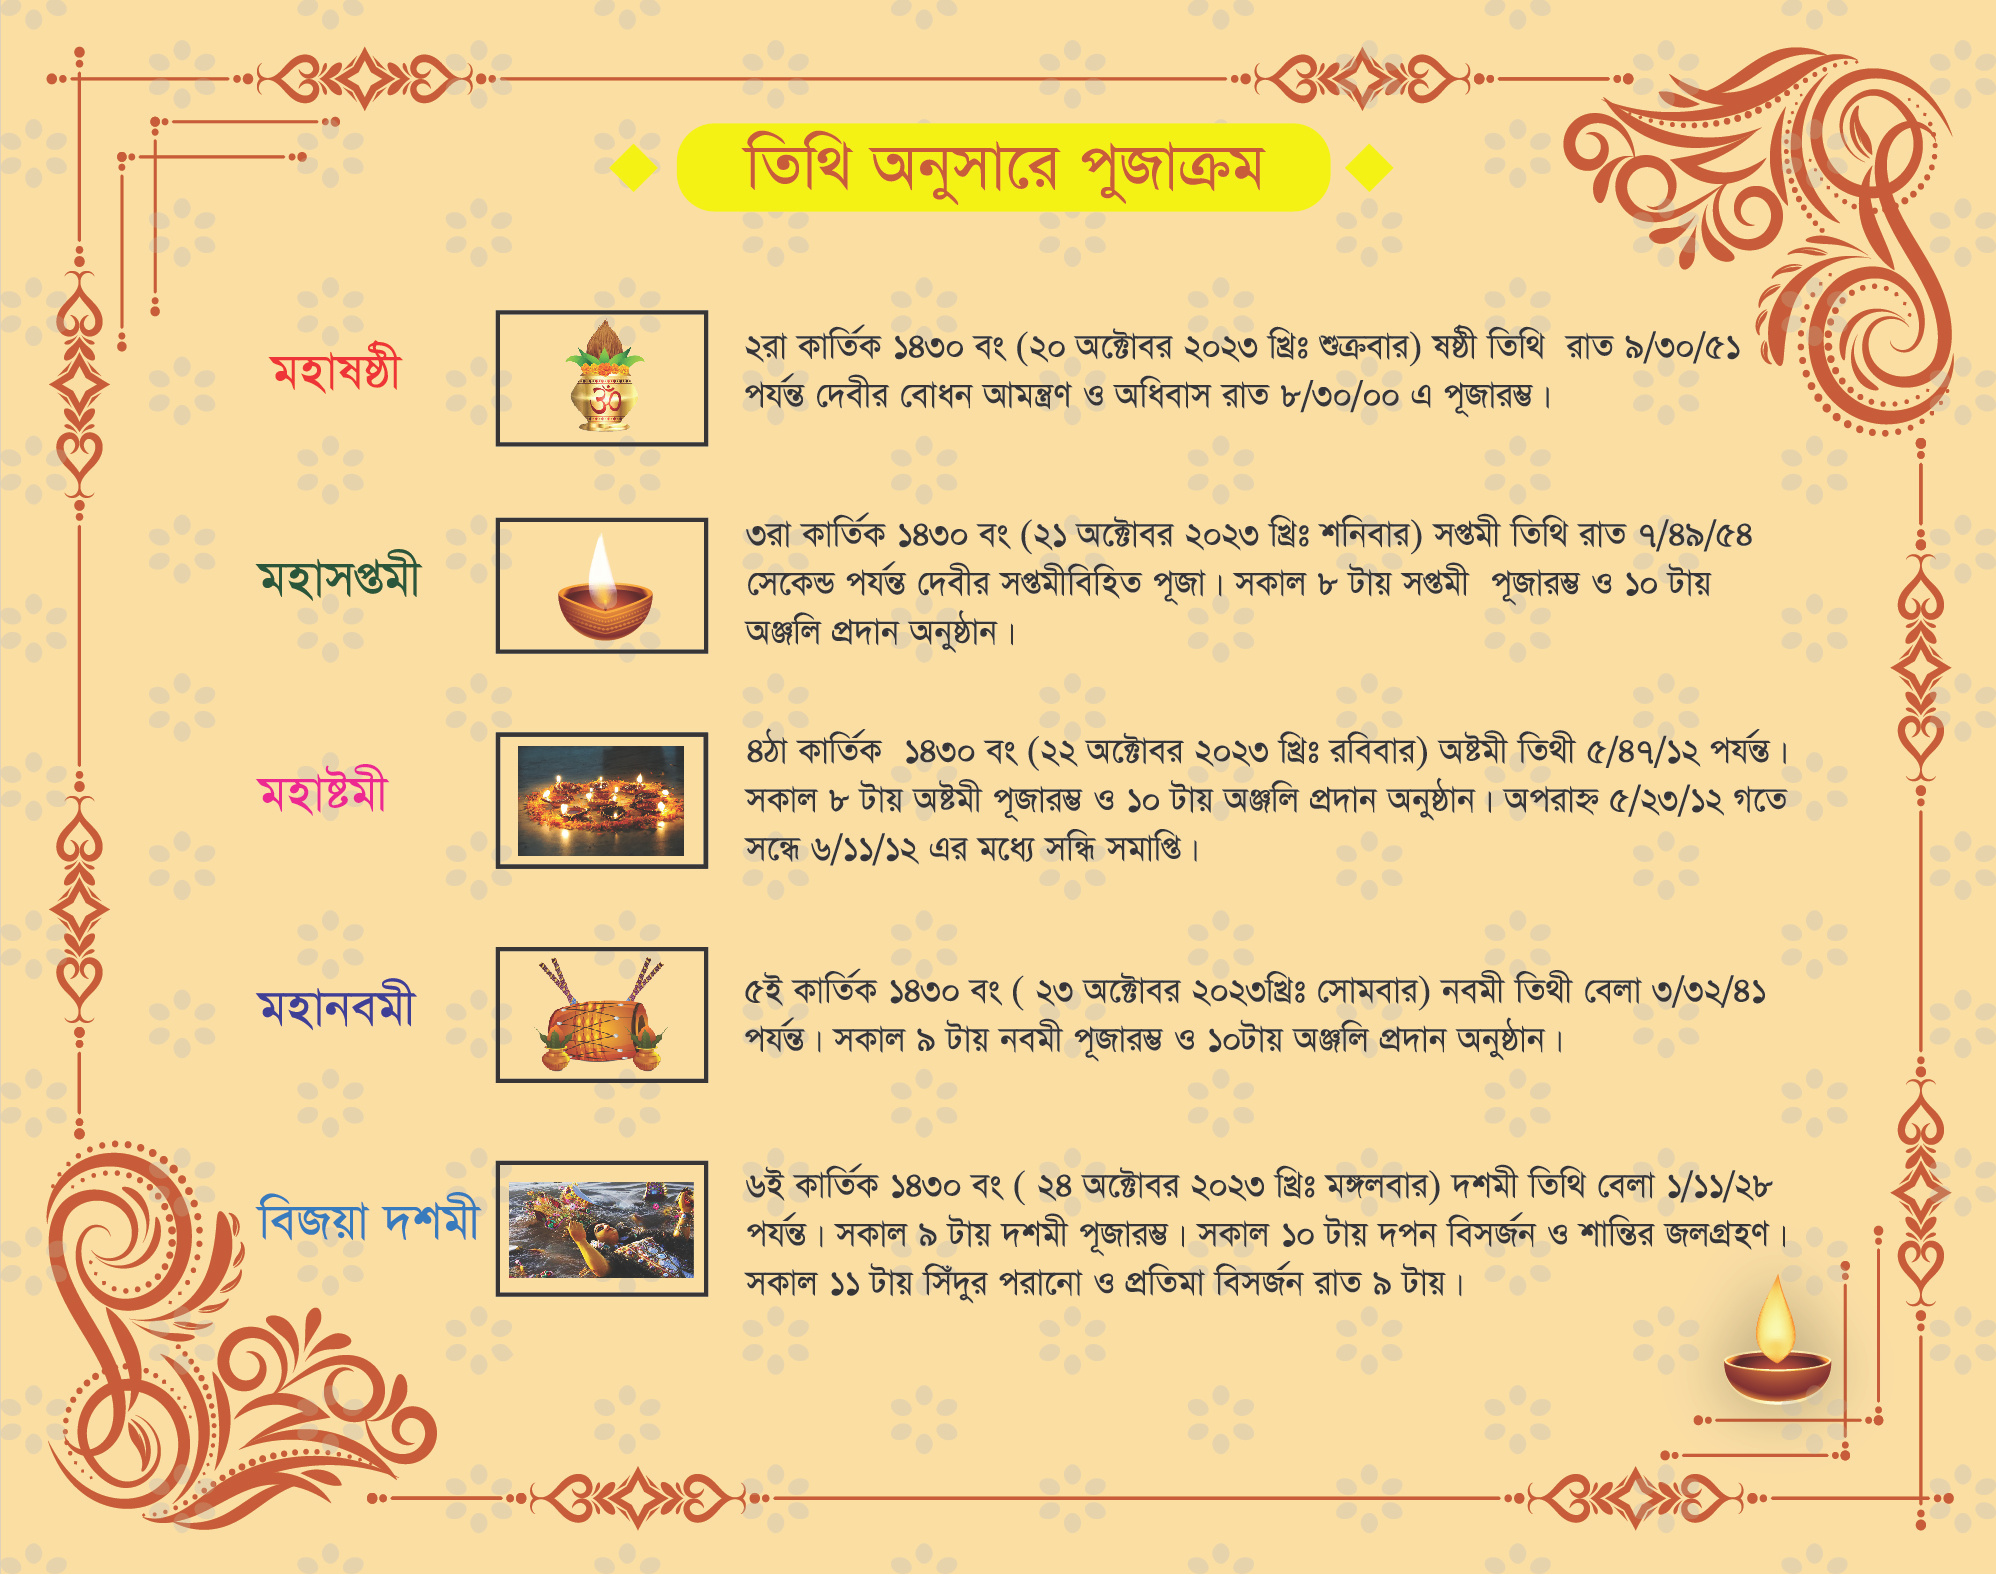 তিথি অনুসারে পুজাক্রম
মহাষষ্ঠী
২রা কার্তিক ১৪৩০ বং (২০ অক্টোবর ২০২৩ খ্রিঃ শুক্রবার) ষষ্ঠী তিথি রাত ৯/৩০/৫১
পর্যন্ত দেবীর বোধন আমন্ত্রণ ও অধিবাস রাত ৮/৩০/০০ এ পূজারম্ভ।
মহাসপ্তমী
৩রা কার্তিক ১৪৩০ বং (২১ অক্টোবর ২০২৩ খ্রিঃ শনিবার) সপ্তমী তিথি রাত ৭/৪৯/৫৪
সেকেন্ড পর্যন্ত দেবীর সপ্তমীবিহিত পূজা। সকাল ৮ টায় সপ্তমী পূজারম্ভ ও ১০ টায়
অঞ্জলি প্রদান অনুষ্ঠান।
মহাষ্টমী
৪ঠা কার্তিক ১৪৩০ বং (২২ অক্টোবর ২০২৩ খ্রিঃ রবিবার) অষ্টমী তিথী ৫/৪৭/১২ পর্যন্ত।
সকাল ৮ টায় অষ্টমী পূজারম্ভ ও ১০ টায় অঞ্জলি প্রদান অনুষ্ঠান। অপরাহ্ন ৫/২৩/১২ গতে
সন্ধে ৬/১১/১২ এর মধ্যে সন্ধি সমাপ্তি।
মহানবমী
৫ই কার্তিক ১৪৩০ বং ( ২৩ অক্টোবর ২০২৩খ্রিঃ সোমবার) নবমী তিথী বেলা ৩/৩২/৪১
পর্যন্ত। সকাল ৯ টায় নবমী পূজারম্ভ ও ১০টায় অঞ্জলি প্রদান অনুষ্ঠান।
বিজয়া দশমী
৬ই কার্তিক ১৪৩০ বং ( ২৪ অক্টোবর ২০২৩ খ্রিঃ মঙ্গলবার) দশমী তিথি বেলা ১/১১/২৮
পর্যন্ত। সকাল ৯ টায় দশমী পূজারম্ভ। সকাল ১০ টায় দপন বিসর্জন ও শান্তির জলগ্রহণ।
সকাল ১১ টায় সিঁদুর পরানো ও প্রতিমা বিসর্জন রাত ৯ টায়।
ॐ